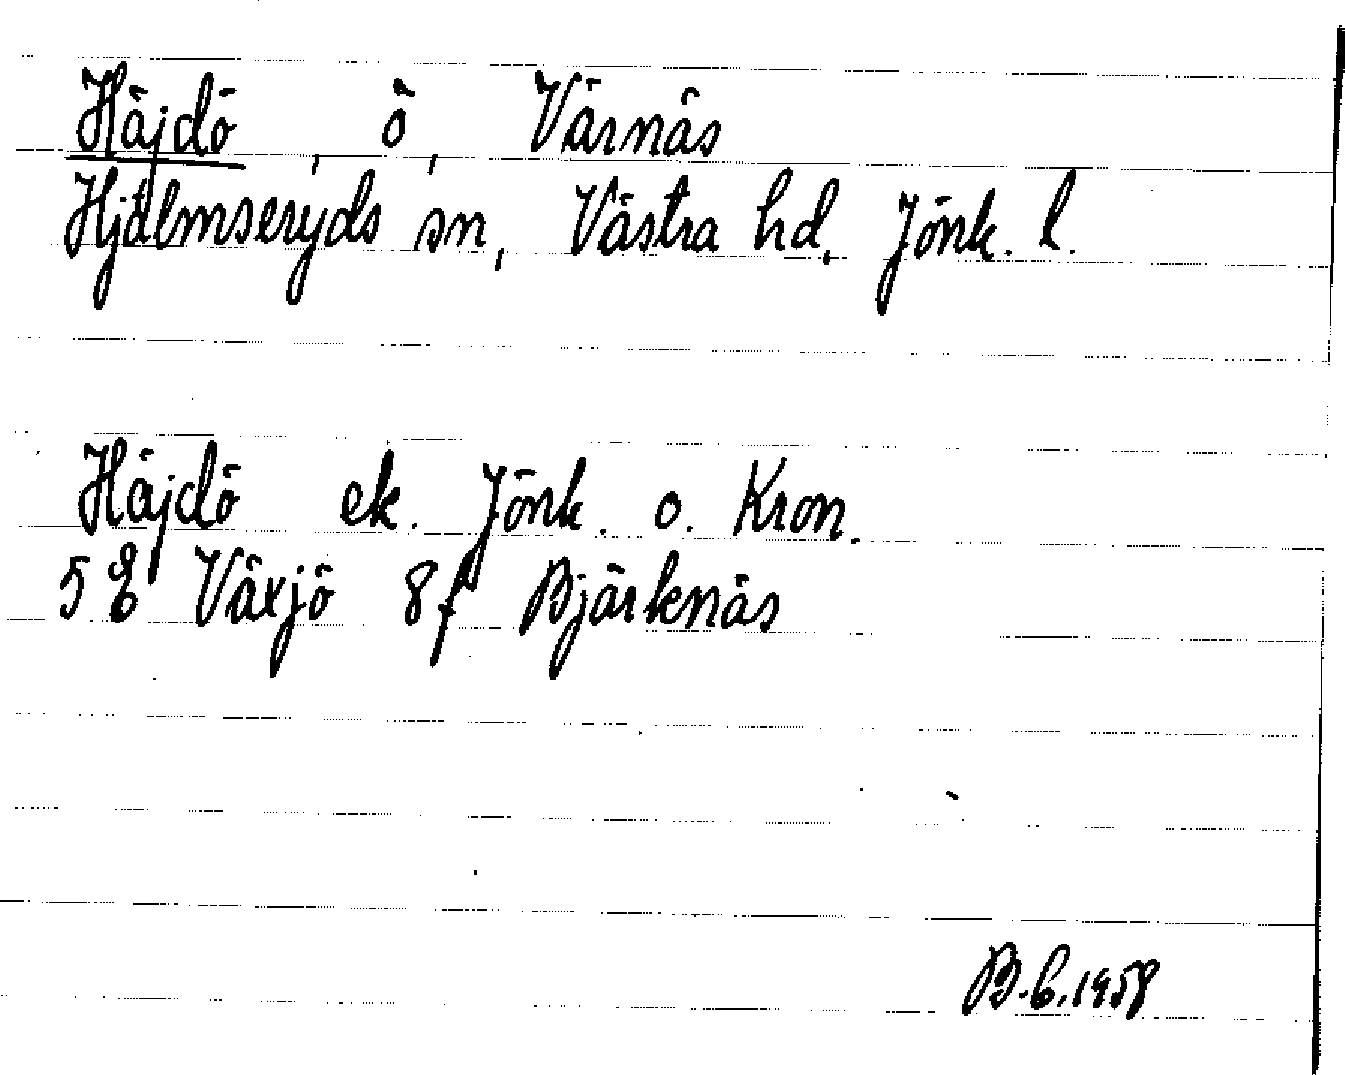 Häjdö, ö, Värnäs
Hjälmseryds sn, Västra hd, Jönk. l.
Häjdö ek. Jönk. o. Kron.
5E Växjö 8f Bjärknäs
B.C.1958